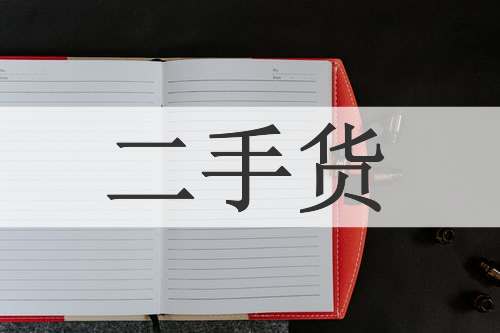 二手货